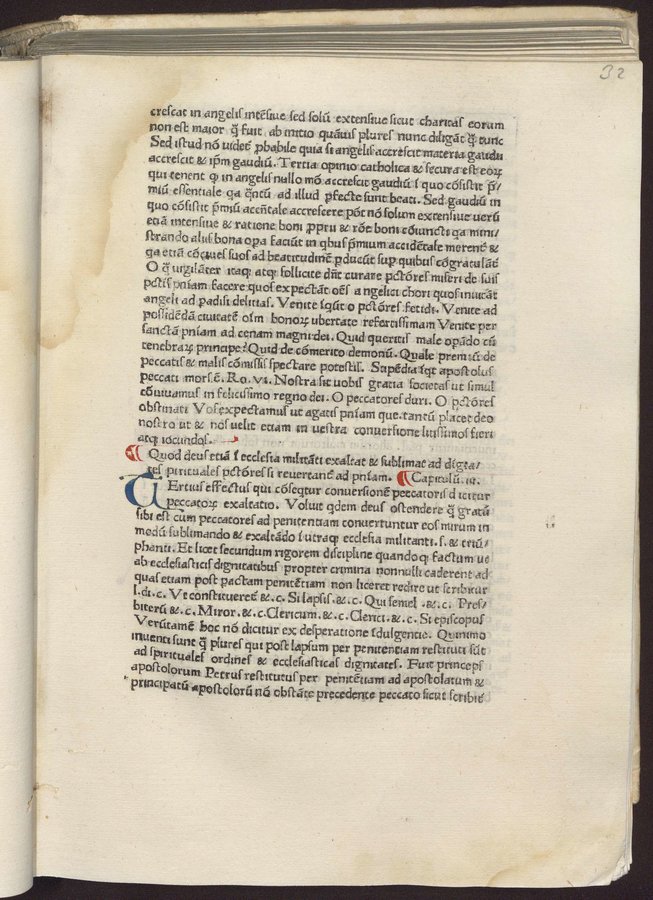 32
crescat in angelis intẽsiue sed solũ extensiue sicut charitas eorum
non est maior q̃ fuit ab initio quãuis plures nunc diligãt q̃ tunc
Sed istud nõ uidet̃ ꝓbabile quia si angelis accrescit materia gaudii
accrescit & ip̃m gaudiũ. Tertia opinio catholica & secura est eoꝝ
qui tenent ꝙ in angelis nullo mõ accrescit gaudiũ ĩ quo cõsistit p̃/
miũ essentiale qa q̃ntũ ad illud ꝑfecte sunt beati. Sed gaudiũ in
quo cõsistit p̃miũ accñtale accrescere põt nõ solum extensiue uerũ
etiã intensiue & ratione boni ꝓprii & rõe boni cõiuncti qa mini/
strando aliis bona oꝑa faciũt in qbus p̃mium accidẽtale merent̃ &
qa etiã cõciues suos ad beatitudinẽ ꝑducũt suꝑ quibus cõgratulãt̃
O q̃ uigilãter itaq; atq; sollicite dñt curare pctõres miseri de suis
pctis pñiam facere quos expectãt oẽs angelici chori quos inuitãt
angeli ad padisi delitias. Venite igit̃ o pctõres fetidi. Venite ad
possidẽdã ciuitatẽ oĩm bonoꝝ ubertate refertissimam Venite per
sanctã pñiam ad cenam magni dei. Quid queritis male opãdo cũ
tenebraꝝ principe? Quid de cõmerito demoniũ. Quale premiũ de
peccatis & malis cõmissis spectare potestis. Stipẽdia iqt apostolus
peccati mors ẽ. Ro. vi. Nostra sit uobis gratia societas ut simul
cõuiuamus in felicissimo regno dei. O peccatores duri. O pctõres
obstinati Vos expectamus ut agatis pñiam que tantũ placet deo
nostro ut & nos uelit etiam in uestra conuersione lętissimos fieri
atq; iocundos.
Quod deus etiã ĩ ecclesia militãti exaltat & sublimat ad digta/
tes spirituales pctõres si reuertant̃ ad pñiam. Capitulũ. iii.
TErtius effectus qui cõseqtur conuersionẽ peccatoris dicitur
peccatoꝝ exaltatio. Voluit qdem deus ostendere q̃ gratũ
sibi est cum peccatores ad penitentiam conuertuntur eos mirum in
modũ sublimando & exaltãdo ĩ utraq; ecclesia militanti. s. & triũ/
phanti. Et licet secundum rigorem discipline quandoq; factum ue
ab ecclesiasticis dignitatibus propter crimina nonnulli caderent ad
quas etiam post pactam penitẽtiam non liceret redire ut scribitur
l. di. c. Vt constitueret̃ &. c. Si lapsis. &. c. Qui semel. &. c. Pres/
biterũ &. c. Miror. &. c. Clericum. &. c. Clerici. &. c. Si episcopus
Verũtamẽ hoc nõ dicitur ex desperatione ĩdulgentie. Quinimo
inuenti sunt q̃ plures qui post lapsum per penitentiam restituti sũt
ad spirituales ordines & ecclesiasticas dignitates. Fuit princeps
apostolorum Petrus restitutus per penitẽtiam ad apostolatum &
principatũ apostolorũ nõ obstãte precedente peccato sicut scribit̃